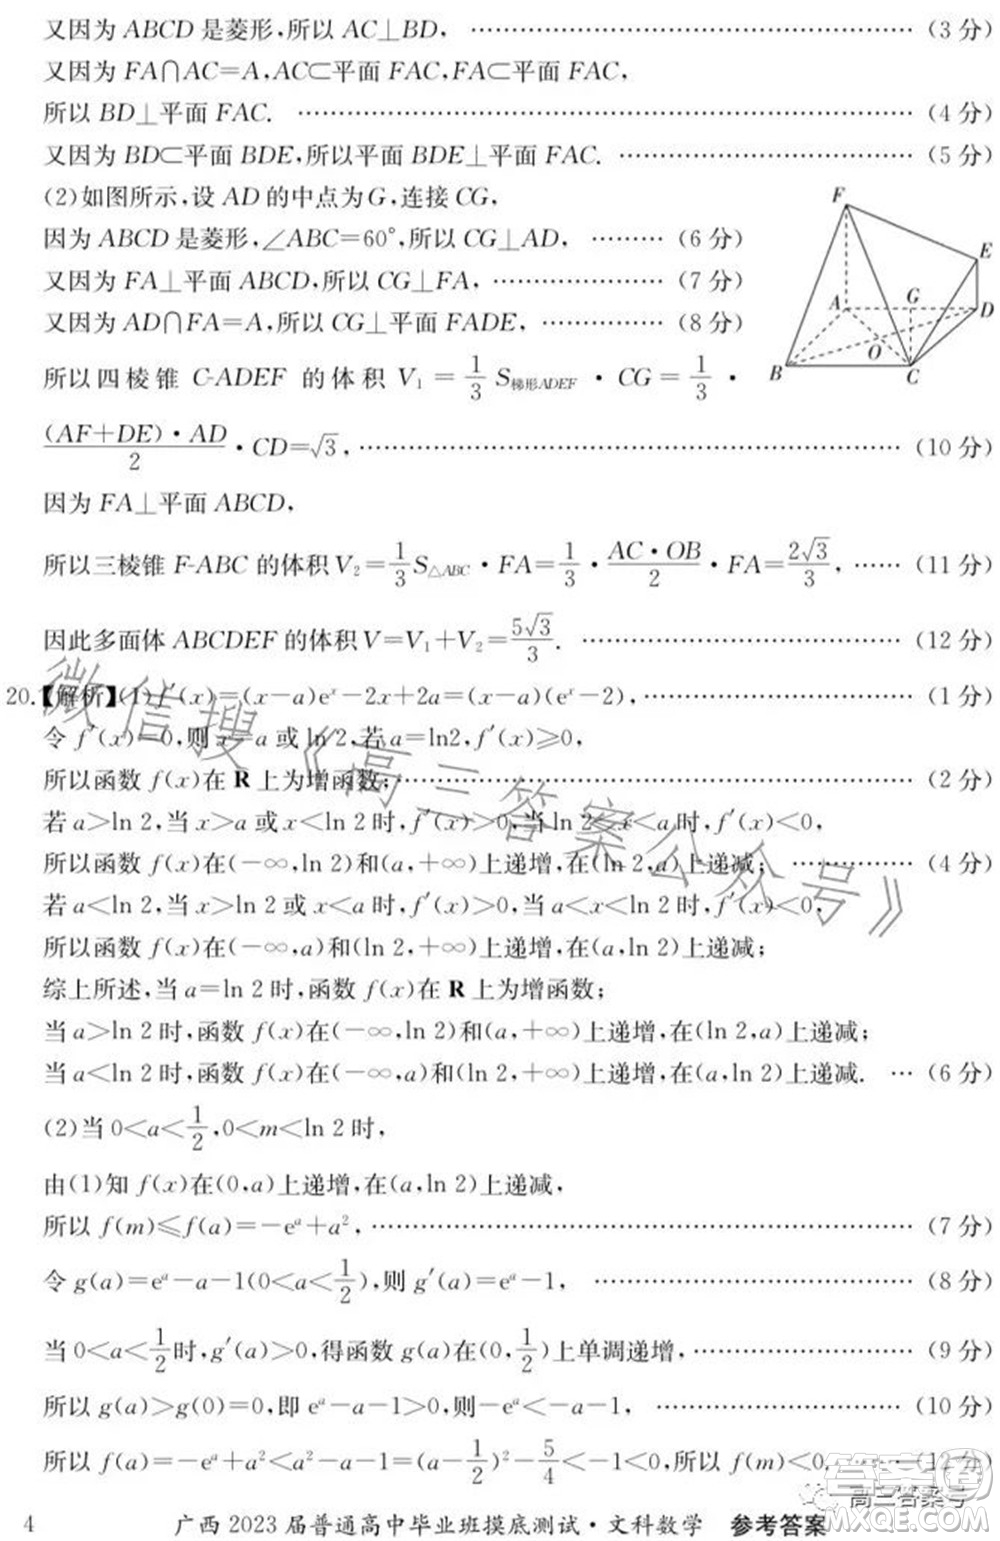 又因为 ABCD 是菱形,所以 AC⊥BD, …… (3 分)
又因为 FA∩AC=A,AC⊂平面 FAC,FA⊂平面 FAC,
所以 BD⊥平面 FAC. …… (4 分)
又因为 BD⊂平面 BDE,所以平面 BDE⊥平面 FAC. …… (5 分)
(2)如图所示,设 AD 的中点为 G,连接 CG,
因为 ABCD 是菱形,∠ABC=60°,所以 CG⊥AD, …… (6 分)
又因为 FA⊥平面 ABCD,所以 CG⊥FA, …… (7 分)
又因为 AD∩FA=A,所以 CG⊥平面 FADE, …… (8 分)
F
E
A
G
D
O
B
C
所以四棱锥 C-ADEF 的体积 V₁ = 1/3 S梯形ADEF · CG = 1/3 ·
(AF+DE)·AD/2 · CD=√3, …… (10 分)
因为 FA⊥平面 ABCD,
所以三棱锥 F-ABC 的体积 V₂=1/3 S△ABC · FA=1/3 · AC·OB/2 · FA=2√3/3, …… (11 分)
因此多面体 ABCDEF 的体积 V=V₁+V₂=5√3/3. …… (12 分)
20.【解析】(1)f′(x)=(x-a)eˣ-2x+2a=(x-a)(eˣ-2), …… (1 分)
令 f′(x)=0,则 x=a 或 ln 2,若 a=ln2,f′(x)≥0,
所以函数 f(x)在 R 上为增函数; …… (2 分)
若 a>ln 2,当 x>a 或 x<ln 2 时,f′(x)>0,当 ln 2<x<a 时,f′(x)<0,
所以函数 f(x)在(-∞,ln 2)和(a,+∞)上递增,在(ln 2,a)上递减; …… (4 分)
若 a<ln 2,当 x>ln 2 或 x<a 时,f′(x)>0,当 a<x<ln 2 时,f′(x)<0,
所以函数 f(x)在(-∞,a)和(ln 2,+∞)上递增,在(a,ln 2)上递减;
综上所述,当 a=ln 2 时,函数 f(x)在 R 上为增函数;
当 a>ln 2 时,函数 f(x)在(-∞,ln 2)和(a,+∞)上递增,在(ln 2,a)上递减;
当 a<ln 2 时,函数 f(x)在(-∞,a)和(ln 2,+∞)上递增,在(a,ln 2)上递减. … (6 分)
(2)当 0<a<1/2,0<m<ln 2 时,
由(1)知 f(x)在(0,a)上递增,在(a,ln 2)上递减,
所以 f(m)≤f(a)=-eᵃ+a², …… (7 分)
令 g(a)=eᵃ-a-1(0<a<1/2),则 g′(a)=eᵃ-1, …… (8 分)
当 0<a<1/2时,g′(a)>0,得函数 g(a)在(0,1/2)上单调递增, …… (9 分)
所以 g(a)>g(0)=0,即 eᵃ-a-1>0,则-eᵃ<-a-1, …… (10 分)
所以 f(a)=-eᵃ+a²<a²-a-1=(a-1/2)²-5/4<-1<0,所以 f(m)<0. …… (12 分)
4 广西 2023 届普通高中毕业班摸底测试·文科数学 参考答案
微信搜《高三答案公众号》
高三答案号
答案圈